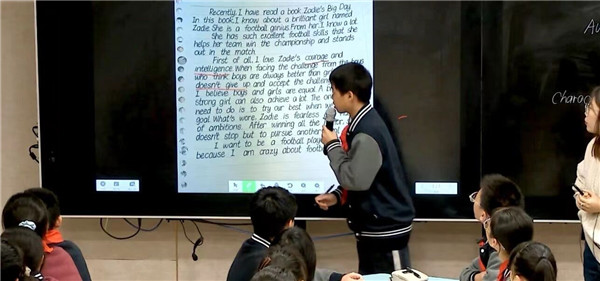 Recently, I have read a book Zadie's Big Day
In this book, I know about a brilliant girl named
Zadie. She is a football genius. From her, I know a lot.
She has such excellent football skills that she
helps her team win the championship and stands
out in the match.
First of all, I love Zadie's courage and
intelligence. When facing the challenge from the boys
who think boys are always better than
doesn't give up and accept the
I believe boys and girls are equal. A
strong girl can also achieve a lot. The
need to do is to try our best when
goal. What's wore, Zadie is fearless
of ambitions. After winning all the
doesn't stop but to pursue another
I want to be a football
because I am crazy about